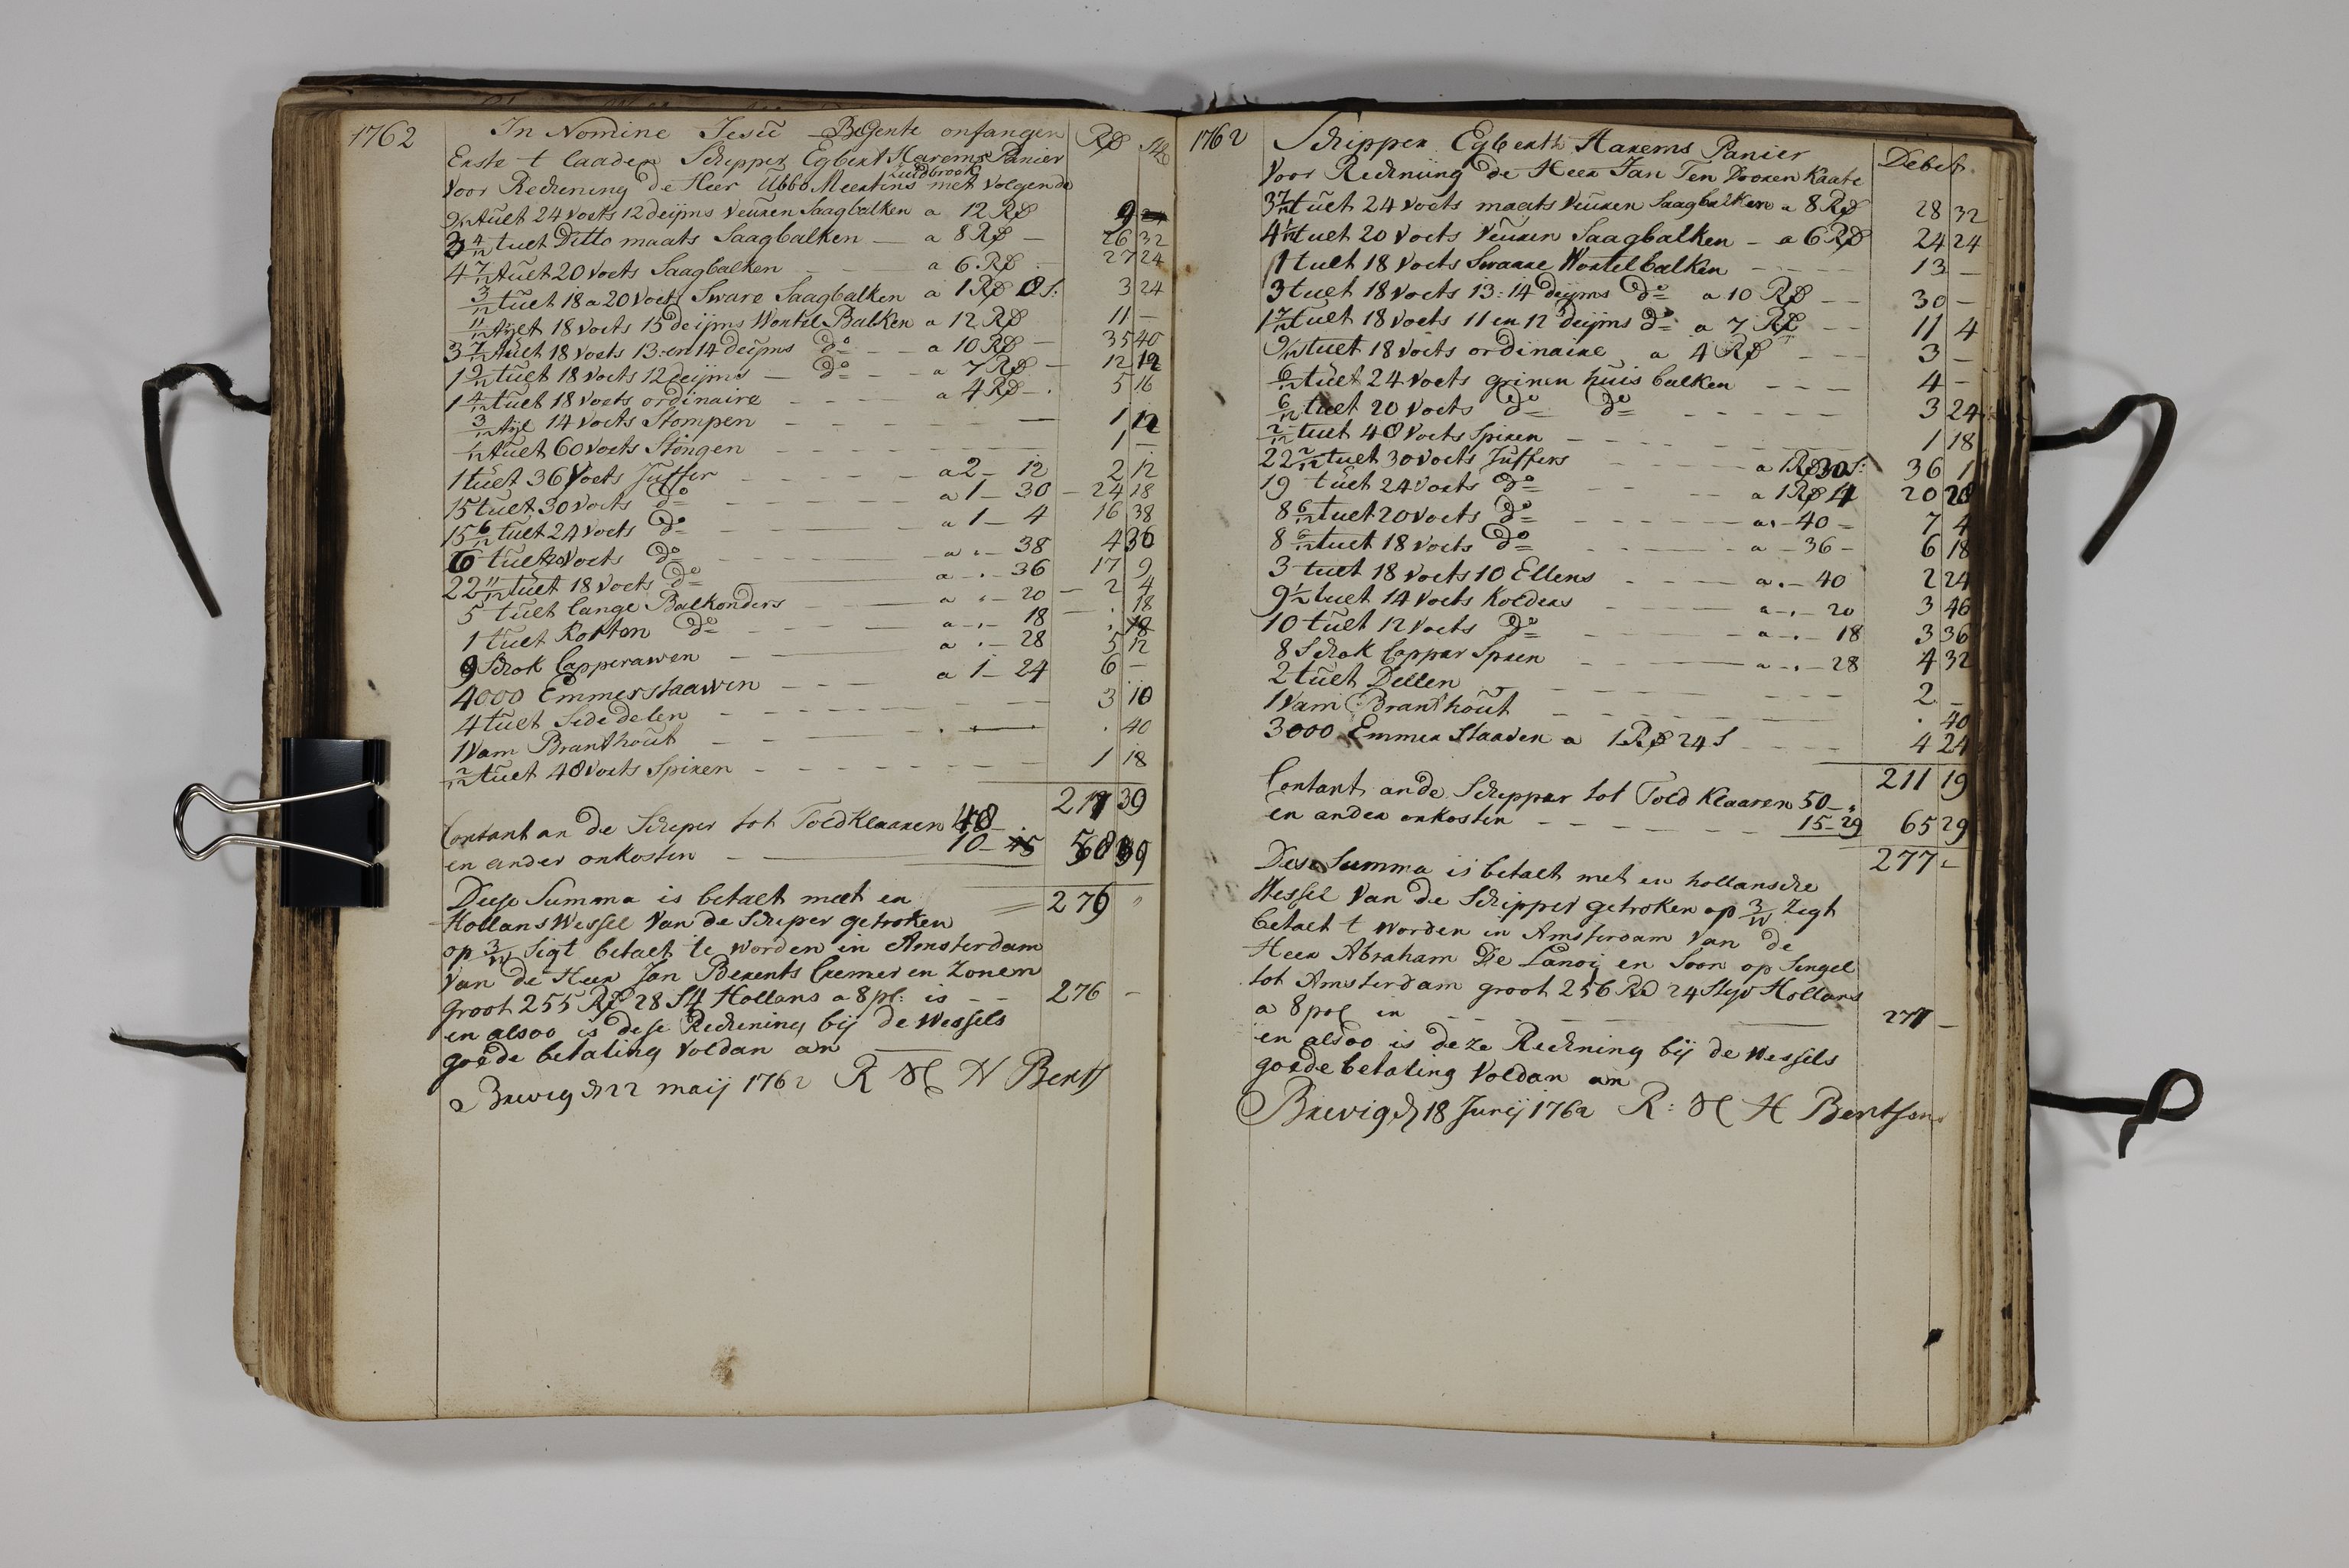 1762 In Nomine Jesü BeGente onfangen RD
Erste t laaden Schipper Egbert Harems Panier
Zuidbrook
Voor Rechening de Heer Übbo Meertins met volgende
9/12 tüelt 24 voets 12 deijms veüren Saagbalken a 12 RD 9
3 4/12 tuelt Ditto maats Saagbalken - a 8 RD - 26 32
4 7/12 tüelt 20 voets Saagbalken a 6 RD - 27 24
3/12 tüelt 18 a 20 voets Sware Saagbalken a 1 RD 8 S: 3 24
11/12 tijlt 18 voets 15 deijms Wortel Balken a 12 RD 11 -
3 7/12 tüelt 18 voets 13: en 14 deijms do - - a 10 RD - 35 40
1 9/12 tüelt 18 voets 12 deijms - do - - a 7 RD - 12 12
1 4/12 tüelt 18 voets ordinaire - - - - a 4 RD - . 5 16
3/12 tijl 14 voets Stompen - - - - - 1 12
1/12 tüelt 60 voets Stongen - - - - - 1 -
1 tüelt 36 Voets Juffer - - - - a 2 - 12 2 12
15 tüelt 30 voets do - - - - a 1 - 30 - 24 18
15 6/12 tüelt 24 voets do - - - - a 1 - 4 16 38
6 tüelt 20 voets do - - - - a . - 38 4 36
22 11/12 tüelt 18 voets do - - - - a - . - 36 17 9
5 tüelt lange Balkonders - - - a . - 20 - 2 4
1 tüelt Korten do - - - - a - . - 18 - . 18
9 Schok Capperawen - - - a . - 28 5 12
4000 Emmerstaawen - - - a 1 - 24 6 -
4 tüelt Sidedelen - - - - 3 10
1 Vam Branthoüt - - - . 40
2/12 tüelt 40 voets Spiren - - - - 1 18
217 39
Contant an de Scheper tot Toldklaaren 48 - .
en ander onkosten - 10 - 58 9
Deese Summa is betaelt meet en = 276 "
Hollans Wessel Van de Scheper getroken
op 3/W Sigt betaelt te worden in Amsterdam
Van de Heer Jan Berents Cremer en Zonen
groot 255 RD 28 S4 Hollans a 8 pC: is - - 276 -
en alsoo is dese Rechening bij de Wessels
goede betaling voldan an
Brevig d 22 maij 1762 R H N Bents
1762 Schipper Egberth Harems Panier Debet
Voor Rechning de Heer Jan Ten Dooren Kaate
3 7/12 tüelt 24 voets maats Veüren Saagbalken a 8 RD 28 32
4 1/12 tuelt 20 voets Veüren Saagbalken - a 6 RD 24 24
1 tuelt 18 voets Swaare Wortelbalken - - - - 13 -
3 tuelt 18 voets 13: 14 deijms do a 10 RD - - 30 -
1 7/12 tuelt 18 voets 11 en 12 deijms do a 7 RD - - 11 4
9/12 tuelt 18 voets ordinaire a 4 RD - - - 3 -
6/12 tüelt 24 voets grinen huis balken - - - 4 -
6/12 tuelt 20 voets do do - - - - - 3 24
2/12 tuelt 40 voets Spiren - - - - 1 18
22 2/12 tuelt 30 voets Juffers - - - a 1 RD 30 S: 36 1
19 tüelt 24 voets do - - - a 1 RD 4 20 28
8 6/12 tuelt 20 voets do - - - a . - 40 - 7 4
8 6/12 tuelt 18 voets do - - - a - 36 - 6 18
3 tuelt 18 voets 10 Ellens - - - a . - 40 2 24
9 1/2 tuelt 14 voets Kolders - - - a - . - 20 3 46
10 tüelt 12 voets do - - - a - . - 18 3 36
8 Schok Cappar Spren - - - a - . - 28 4 32
2 tüelt Dellen - - - - 2 -
1 Vam Branthoüt - - - - . 40
3000 Emmer Staaven a 1 RD 24 S - - - - 4 24
211 19
Contant an de Schippar tot Told Klaaren 50 - "
en ander onkosten - - - - 15 - 29 65 29
277 -
Dese Summa is betalt met en hollansche
Wessel Van de Schipper getroken op 3/W Zegt
betaelt t worden in Amsterdam Van de
Heer Abraham De Lanoij en Soon op Sengel
tot Amsterdam groot 256 RD 24 Styv Hollans
a 8 poC in - - - 277 -
en alsoo is deze Rechning bij de Wessels
goede betaling Voldan an
Brevig d 18 Junij 1762 R: H H Bentsen